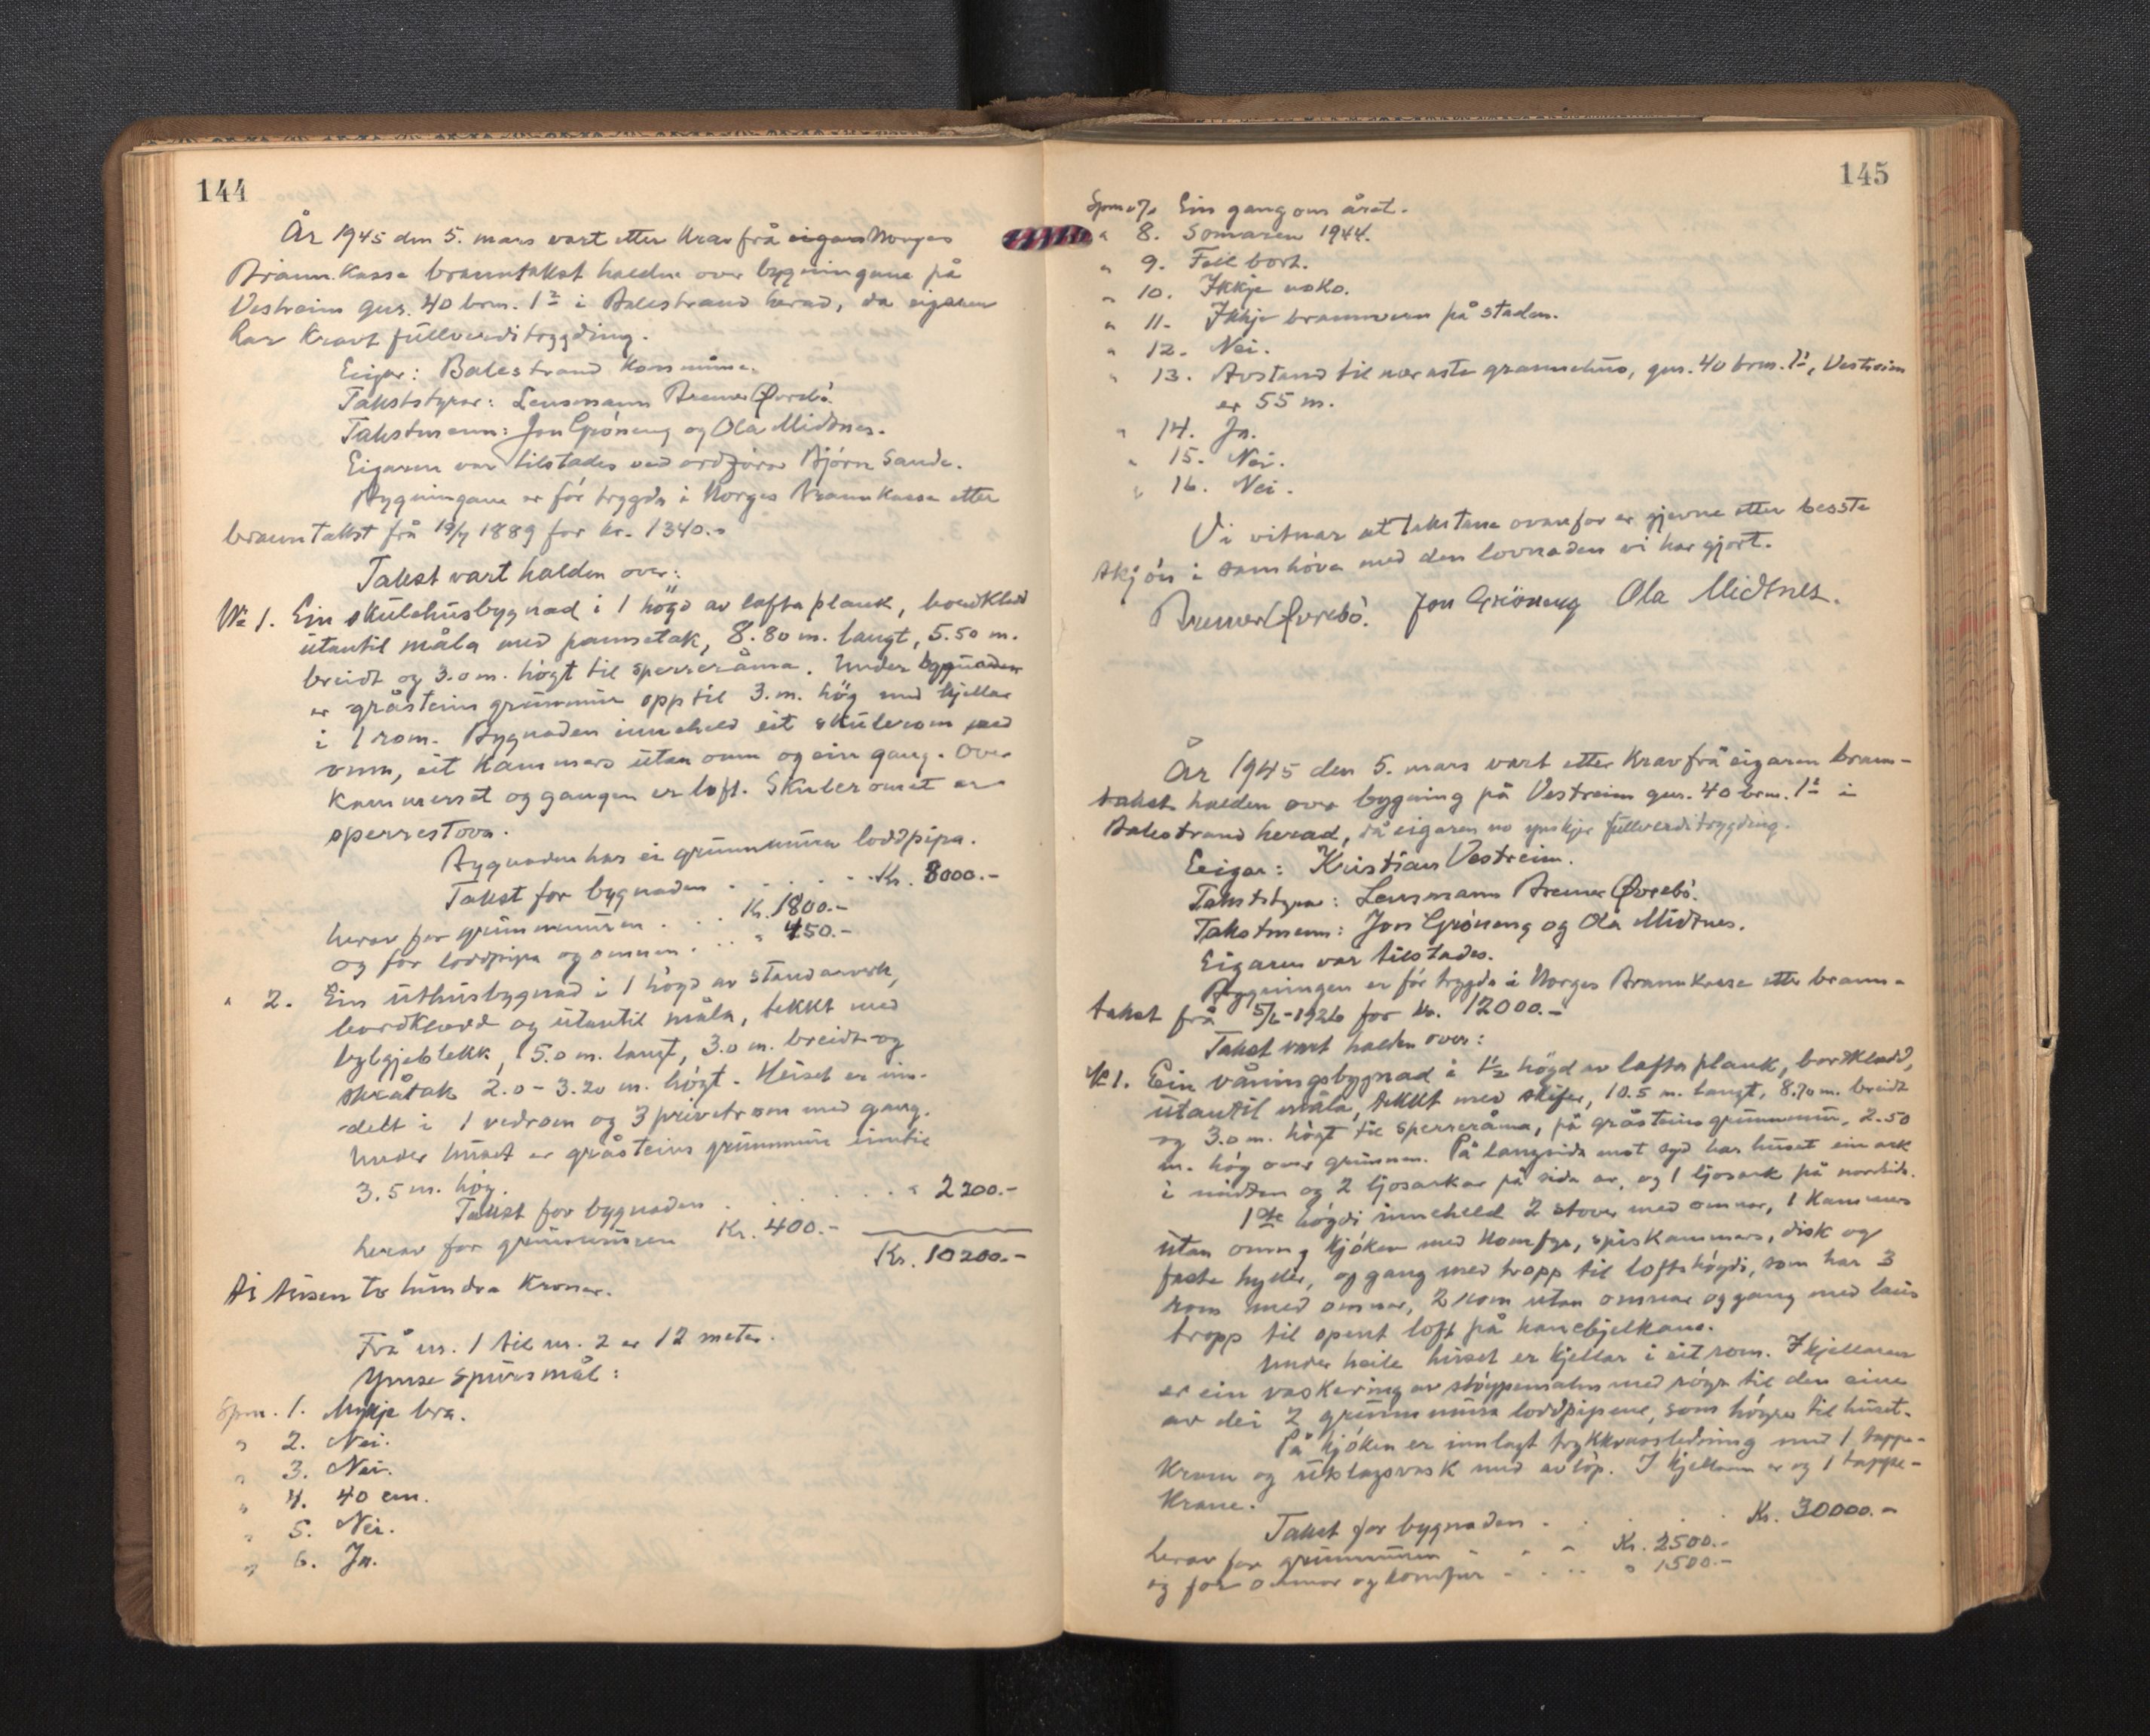 144
År 1945 den 5. mars vart etter krav frå eigar Norges
Brannkasse branntakst halden over bygningane på
Vestreim gnr. 40 brn. 12 i Balestrand herad, da eigaren
har kravt fullverditrygding.
Eigar: Balestrand kommune.
Takststyrar: Lensmann Bremer Øvrebö.
Takstmenn: Jon Gröneng og Ola Midtnes.
Eigaren var tilstades ved ordförar Björn Sande.
Bygningane er för trygda i Norges Brannkasse etter
branntakst frå 19/7 1889 for kr. 1340.-
Takst vart halden over:
No 1. Ein skulehusbygnad i 1 högd av lafta plank, bordkledd
utantil måla med pannetak, 8.80 m. langt, 5.50 m.
breidt og 3.0 m. högt til sperreråma. Under bygnaden
er gråsteins grunnmur opp til 3. m. hög med kjellar
i 1 rom. Bygnaden inneheld eit skulerom med
omn, eit kammers utan omn og ein gang. Over
kammerset og gangen er loft. Skulerommet er
sperrestova.
Bygnaden har ei grunnmura loddpipa.
Takst for bygnaden . . . . . Kr. 8000.-
herav for grunnmuren . . . Kr. 1800.-
og for loddpipa og omnen . . . " 450.-
" 2. Ein uthusbygnad i 1 högd av standarverk,
bordkledd og utantil måla, tekkt med
bylgjeblekk, 5.0 m. langt, 3.0 m. breidt og
skråtak 2.0 - 3.20 m. högt. Huset er inn-
delt i 1 vedrom og 3 privetrom med gang.
Under huset er gråsteins grunnmur inntil
3.5 m. hög.
Takst for bygnaden . . . . . . " 2200.-
herav for grunnmuren Kr. 400.-
Kr. 10200.-
Ti tusen to hundra kroner.
Frå nr. 1 til nr. 2 er 12 meter.
Ymse spursmål:
Spm. 1. Mykje bra.
" 2. Nei.
" 3. Nei.
" 4. 40 cm.
" 5. Nei.
" 6. Ja.
145
Spm. 7. Ein gang om året.
" 8. Somaren 1944.
" 9. Fell bort.
" 10. Ikkje noko.
" 11. Ikkje brannvern på staden.
" 12. Nei.
" 13. Avstand til næraste grannehus, gnr. 40 brn. 11, Vestreim
er 55 m.
" 14. Ja.
" 15. Nei.
" 16. Nei.
Vi vitnar at takstane ovanfor er gjevne etter besste
skjön i samhöve med den lovnaden vi har gjort.
Bremer Øvrebö. Jon Gröneng Ola Midtnes.
År 1945 den 5. mars vart etter krav frå eigaren brann-
takst halden over bygning på Vestreim gnr. 40 brn. 11 i
Balestrand herad, då eigaren no ynskje fullverditrygding.
Eeigar: Kristian Vestreim.
Takststyrar: Lensmann Bremer Øvrebö.
Takstmenn: Jon Gröneng og Ola Midtnes.
Eigaren var tilstades.
Bygningen er för trygda i Norges Brannkasse etter brann-
takst frå 5/6-1926 for kr. 12000.-
Takst vart halden over:
No 1. Ein våningsbygnad i 1½ högd av lafta plank, bordkledd,
utantil måla, tekkt med skifer, 10.5 m. langt, 8.70 m. breidt
og 3.0 m. högt til sperreråma, på gråsteins grunnmur, 2.50
m. hög over grunnen. På langsida mot syd har huset ein ark
i midten og 2 ljosarkar på sida av, og 1 ljosark på nordsida.
1ste högdi inneheld 2 stover med omnar, 1 kammers
utan omn, kjöken med komfyr, spiskammers, disk og
faste hyller, og gang med tropp til loftshögdi, som har 3
rom med omnar, 2 rom utan omnar og gang med laus
tropp til opent loft på hanebjelkane.
Under heile huset er kjellar i eit rom. I kjellaren
er ein vaskering av stöypemalm med röyr til den eine
av dei 2 grunnmura loddpipene, som höyrer til huset.
På kjöken er innlagt trykkvassledning med 1 tappe-
kran og utslagsvask med avlöp. I kjellaren er og 1 tappe-
krane.
Takst for bygnaden . . . . . Kr. 30000.-
herav for grunnmuren . . . Kr. 2500.-
og for omnar og komfyr . . . . " 1500.-